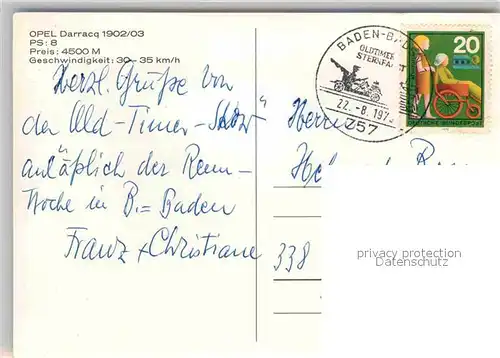 OPEL Darracq 1902/03
PS: 8
Preis: 4500 M
Geschwindigkeit: 30-35 km/h
Herzl. Grüße von
der Old-Timer-Show"
anläßlich der Renn-
Woche in B.=Baden
Franz + Christiane
BADEN-BA
OLDTIMER
STERNFA
22.-8.197
757
20
DEUTSCHE BUNDESPOST
Herrn
338
privacy protection
Datenschutz